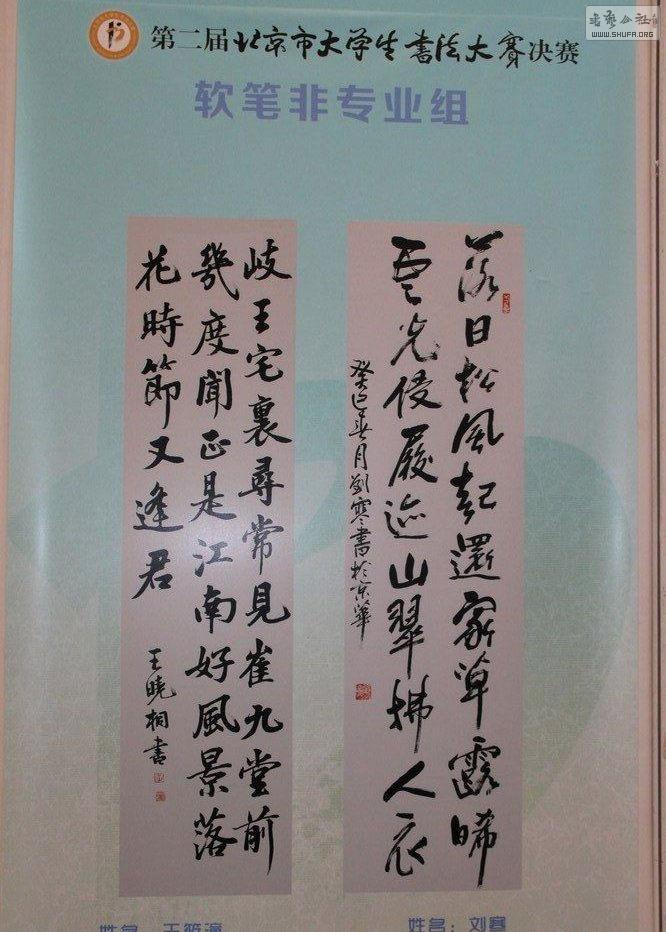 WWW.SHUFA.ORG
第二届北京市大学生書法大賽决赛
软笔非专业组
落日松風起還家草露晞
雲光侵履迹山翠拂人衣
癸巳春月劉寒書於京華
岐王宅裏尋常見崔九堂前
幾度聞正是江南好風景落
花時節又逢君
王曉桐書
姓名 王
姓名：刘寒